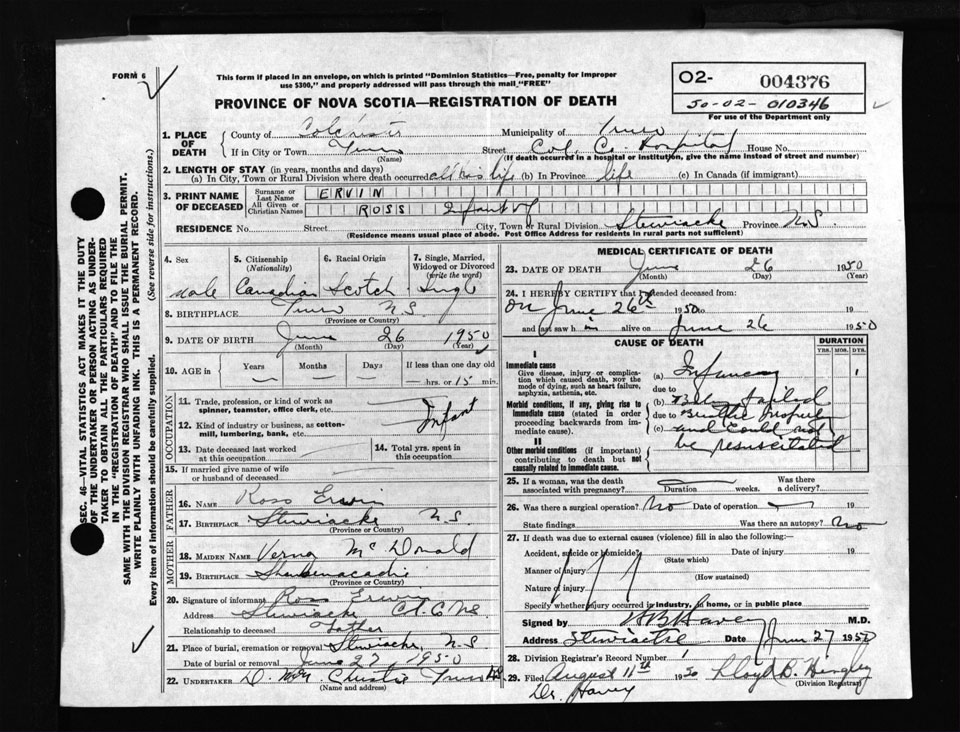 FORM 6
This form if placed in an envelope, on which is printed "Dominion Statistics—Free, penalty for improper
use $300," and properly addressed will pass through the mail "FREE"
O2- 004376
50-02-010346
For use of the Department only
PROVINCE OF NOVA SCOTIA—REGISTRATION OF DEATH
1. PLACE OF DEATH
County of Colchester Municipality of Truro
If in City or Town Truro Street Col. Co. Hospital House No.
(Name) (If death occurred in a hospital or institution, give the name instead of street and number)
2. LENGTH OF STAY (in years, months and days)
(a) In City, Town or Rural Division where death occurred all his life (b) In Province life (c) In Canada (if immigrant)
3. PRINT NAME OF DECEASED
Surname or Last Name ERVIN
All Given or Christian Names ROSS Infant of
RESIDENCE No. Street City, Town or Rural Division Stewiacke Province N.S
(Residence means usual place of abode. Post Office Address for residents in rural parts not sufficient)
4. Sex male
5. Citizenship (Nationality) Canadian
6. Racial Origin Scotch
7. Single, Married, Widowed or Divorced (write the word) Single
8. BIRTHPLACE Truro N.S.
(Province or Country)
9. DATE OF BIRTH June 26 1950
(Month) (Day) (Year)
10. AGE in Years Months Days If less than one day
— — — — hrs. or 15 min.
OCCUPATION
11. Trade, profession, or kind of work as spinner, teamster, office clerk, etc. Infant
12. Kind of industry or business, as cotton-mill, lumbering, bank, etc.
13. Date deceased last worked at this occupation
14. Total yrs. spent in this occupation
15. If married give name of wife or husband of deceased
FATHER
16. NAME Ross Erwin
17. BIRTHPLACE Stewiacke N.S.
(Province or Country)
MOTHER
18. MAIDEN NAME Verna McDonald
19. BIRTHPLACE Shubenacadie
(Province or Country)
20. Signature of informant Ross Erwin
Address Stewiacke
Relationship to deceased Father
21. Place of burial, cremation or removal Stewiacke N.S
Date of burial or removal June 27 1950
22. UNDERTAKER Christie Truro NS
(Name and address)
MEDICAL CERTIFICATE OF DEATH
23. DATE OF DEATH June 26 1950
(Month) (Day) (Year)
24. I HEREBY CERTIFY that I attended deceased from:
on June 26th 1950 to 19
and last saw h im alive on June 26 1950
CAUSE OF DEATH DURATION
YRS. MOS. DYS.
I
Immediate cause
Give disease, injury or complication which caused death, NOT the mode of dying, such as heart failure, asphyxia, asthenia, etc.
(a) Infancy 1
due to
Morbid conditions, if any, giving rise to immediate cause (stated in order proceeding backwards from immediate cause).
(b) Baby failed
due to Breathe properly
(c) and could not
be resuscitated
II
Other morbid conditions (if important) contributing to death but not causally related to immediate cause.
25. If a woman, was the death associated with pregnancy? Duration weeks. Was there a delivery?
26. Was there a surgical operation? No Date of operation — 19
State findings Was there an autopsy? No
27. If death was due to external causes (violence) fill in also the following:—
Accident, suicide or homicide? Date of injury 19
(State which)
Manner of injury
(How sustained)
Nature of injury
Specify whether injury occurred in industry, in home, or in public place
Signed by M.D.
Address Stewiacke Date June 27 1950
28. Division Registrar's Record Number 1
29. Filed August 11th 1950 Lloyd B. Hingley
(Division Registrar)
SEC. 46—VITAL STATISTICS ACT MAKES IT THE DUTY
OF THE UNDERTAKER OR PERSON ACTING AS UNDER-
TAKER TO OBTAIN ALL THE PARTICULARS REQUIRED
IN THE "REGISTRATION OF DEATH" AND TO FILE THE
SAME WITH THE DIVISION REGISTRAR WHO SHALL ISSUE THE BURIAL PERMIT.
WRITE PLAINLY WITH UNFADING INK. THIS IS A PERMANENT RECORD.
Every item of information should be carefully supplied. (See reverse side for instructions.)